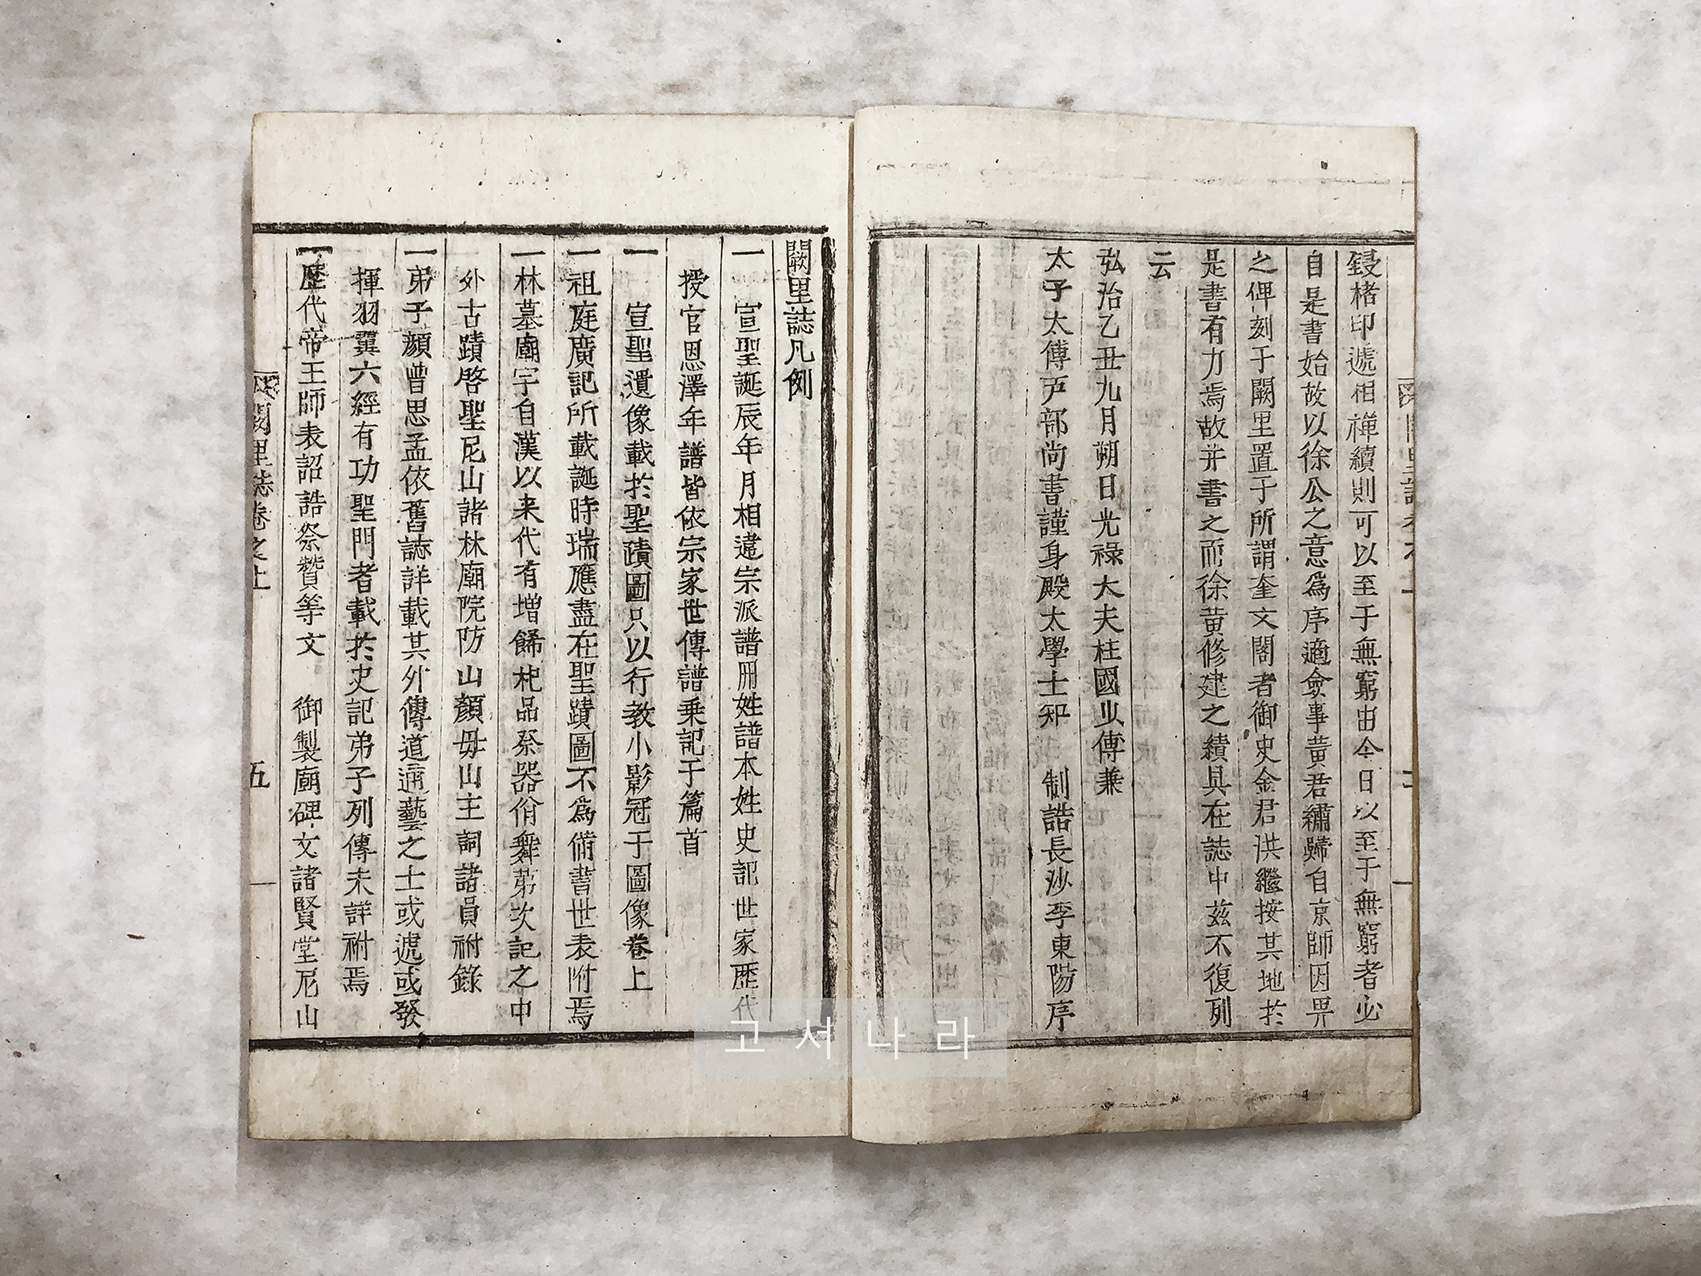 鋟楮印遞相禪續則可以至于無窮由今日以至于無窮者必
自是書始故以徐公之意爲序適僉事黄君繡歸自京師因畀
之俾刻于闕里置于所謂奎文閣者御史金君洪繼按其地於
是書有力焉故并書之而徐黄修建之績具在誌中兹不復列
云
弘治乙丑九月朔日光祿大夫柱國少傅兼
太子太傅戸部尚書謹身殿太學士知　制誥長沙李東陽序
闕里誌凡例
一　宣聖誕辰年月相違宗派譜用姓譜本姓史記世家歷代
授官恩澤年譜皆依宗家世傳譜乗記于篇首
一　宣聖遺像載於聖蹟圖只以行教小影冠于圖像卷上
一祖庭廣記所載誕時瑞應盡在聖蹟圖不為備書世表附焉
一林墓廟宇自漢以来代有增餙祀品祭器佾舞苐次記之中
外古蹟啓聖尼山諸林廟院防山顏毋山主祠諸員祔錄
一弟子顔曾思孟依舊誌詳載其外傳道通藝之士或遞或發
揮羽翼六經有功聖門者載於史記弟子列傳未詳祔焉
一歷代帝王師表詔誥祭贊等文　御製廟碑文諸賢堂尼山
闕里誌卷之上　五
고서나라